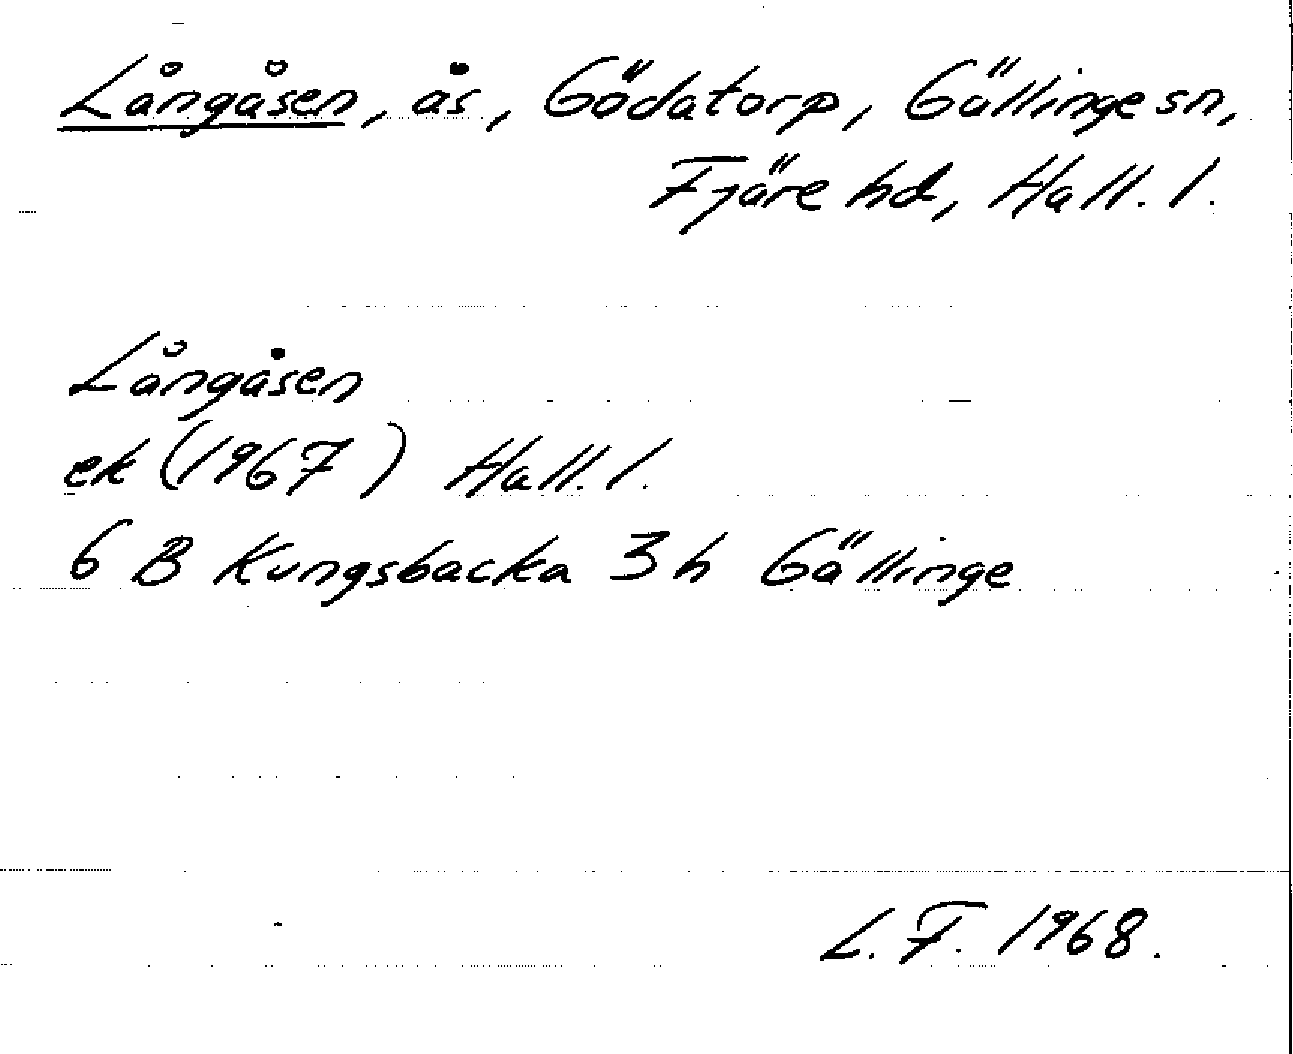 Långåsen, ås, Gödatorp, Gällinge sn,
Fjäre hd, Hall. l.
Långåsen
ek (1967) Hall. l.
6 B Kungsbacka 3 h Gällinge
L. F. 1968.